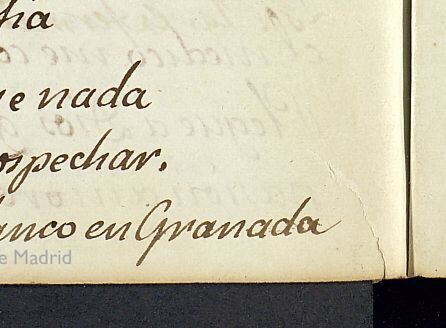 hia
e nada
ospechar.
anco en Granada
e Madrid